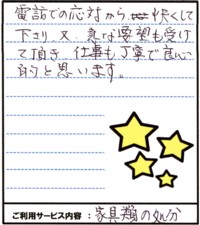 電話での応対から快くして
下さり 又、急な要望も受け
て頂き、仕事も丁寧で良心
的と思います。
ご利用サービス内容：家具類の処分